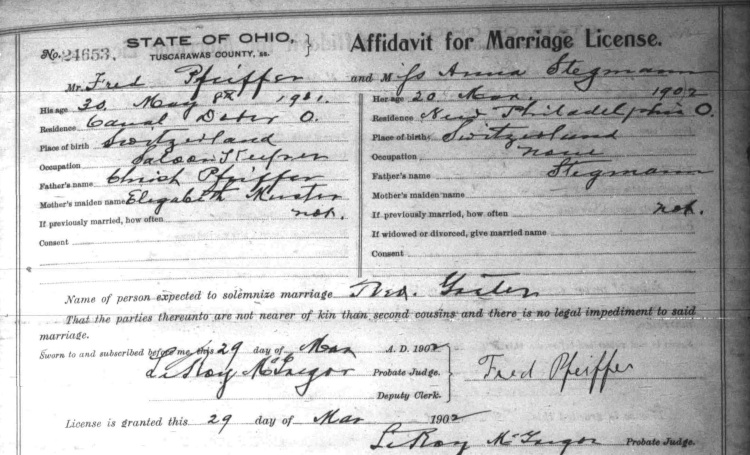 No. 24653. STATE OF OHIO, TUSCARAWAS COUNTY, ss. } Affidavit for Marriage License.
Mr. Fred Pfeiffer and Miss Anna Stegmann
His age 30 May 8th 1901.
Residence Canal Dover O.
Place of birth Switzerland
Occupation Saloon Keeper
Father's name Christ Pfeiffer
Mother's maiden name Elizabeth
If previously married, how often not.
Consent
Her age 20 Mar. 1902
Residence New Philadelphia O.
Place of birth Switzerland
Occupation none
Father's name Stegmann
Mother's maiden name
If previously married, how often not.
If widowed or divorced, give married name
Consent
Name of person expected to solemnize marriage
That the parties thereunto are not nearer of kin than second cousins and there is no legal impediment to said
marriage.
Sworn to and subscribed before me this 29 day of Mar A. D. 1902
LeRoy McGregor Probate Judge.
Deputy Clerk.
Fred Pfeiffer
License is granted this 29 day of Mar 1902
LeRoy McGregor Probate Judge.